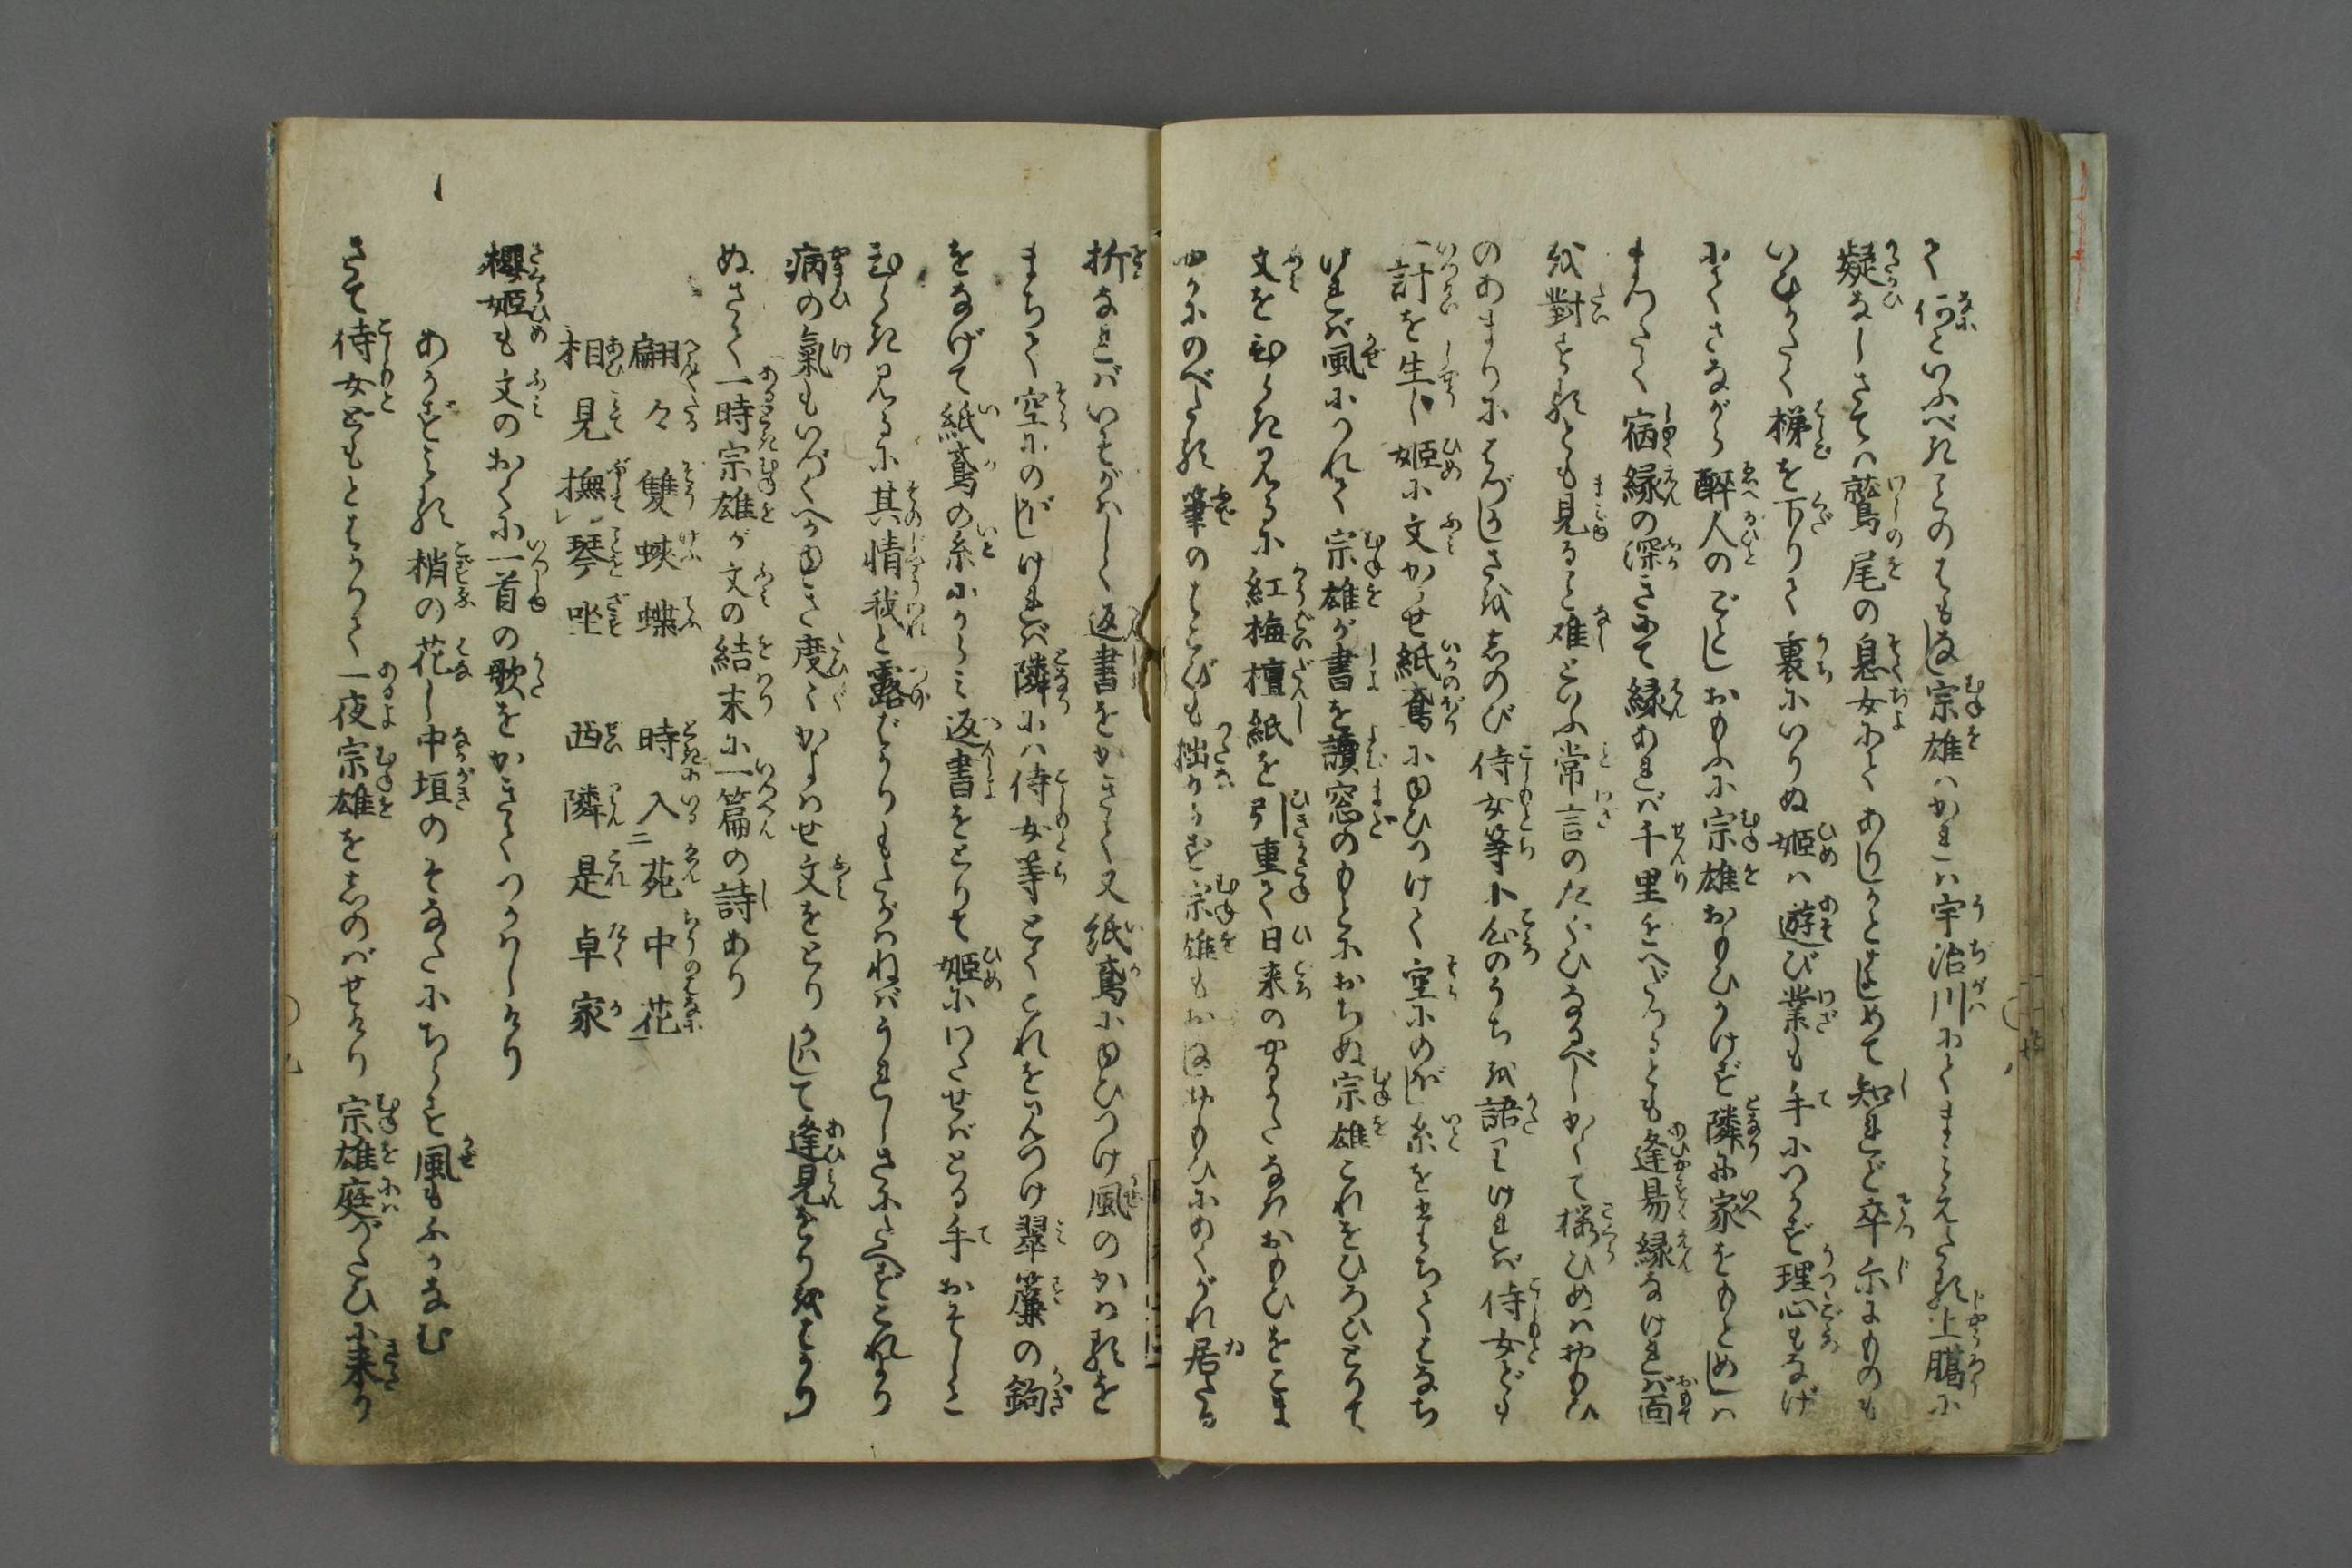 く何といふべきことのはもなし宗雄はかれは宇治川にてまみえたる上臈に
疑なしさては鷲尾の息女にてありしかとはじめて知れど卒尓にものも
いひがたく梯を下りて裏にいりぬ姫は遊び業も手につかず理心もなげ
にてさながら醉人のごとしおもふに宗雄おもひがけず隣に家をもとめしは
まつたく宿縁の深きにて縁あれば千里をへだつるとも逢易縁なければ面
を對するとも見ること难といふ常言のたぐひなるべしかくて桜ひめはおもひ
のあまりにはづかしさをしのび侍女等に心のうちを語りければ侍女ども
一計を生し姫に文かゝせ紙鳶にゆひつけて空にのぼし糸をはなちてはなち
ければ風につれて宗雄が書を讀窓のもとにおちぬ宗雄これをひろひとりて
文をひらき見るに紅梅檀紙を引重て日来の切なるおもひをこま
やかにのべたる筆のはこびも拙からず宗雄もおなじおもひにあくがれ居たる
折なればいそがはしく返書をかきて又紙鳶にゆひつけ風のかはるを
まちて空にのぼしければ隣には侍女等とくこれを見つけ翠簾の鉤
をなげて紙鳶の糸にからみ返書をとりて姫にわたせばとる手おそしと
ひらき見るに其情我と露ばかりもたがはねばうれしさにたへずこれより
病の氣もいづくへかゆき度々かよはせ文をとりかはして逢見んをりをはかり
ぬさて一時宗雄が文の結末に一篇の詩あり
翩々雙蛺蝶　時入二苑中花一
相見撫レ琴坐　西隣是卓家
櫻姫も文のおくに一首の歌をかきてつかはしけり
あかずみる梢の花し中垣のそなたにちらず風もふかなむ
さて侍女どもとはかりて一夜宗雄をしのばせけり宗雄庭づたひに来り